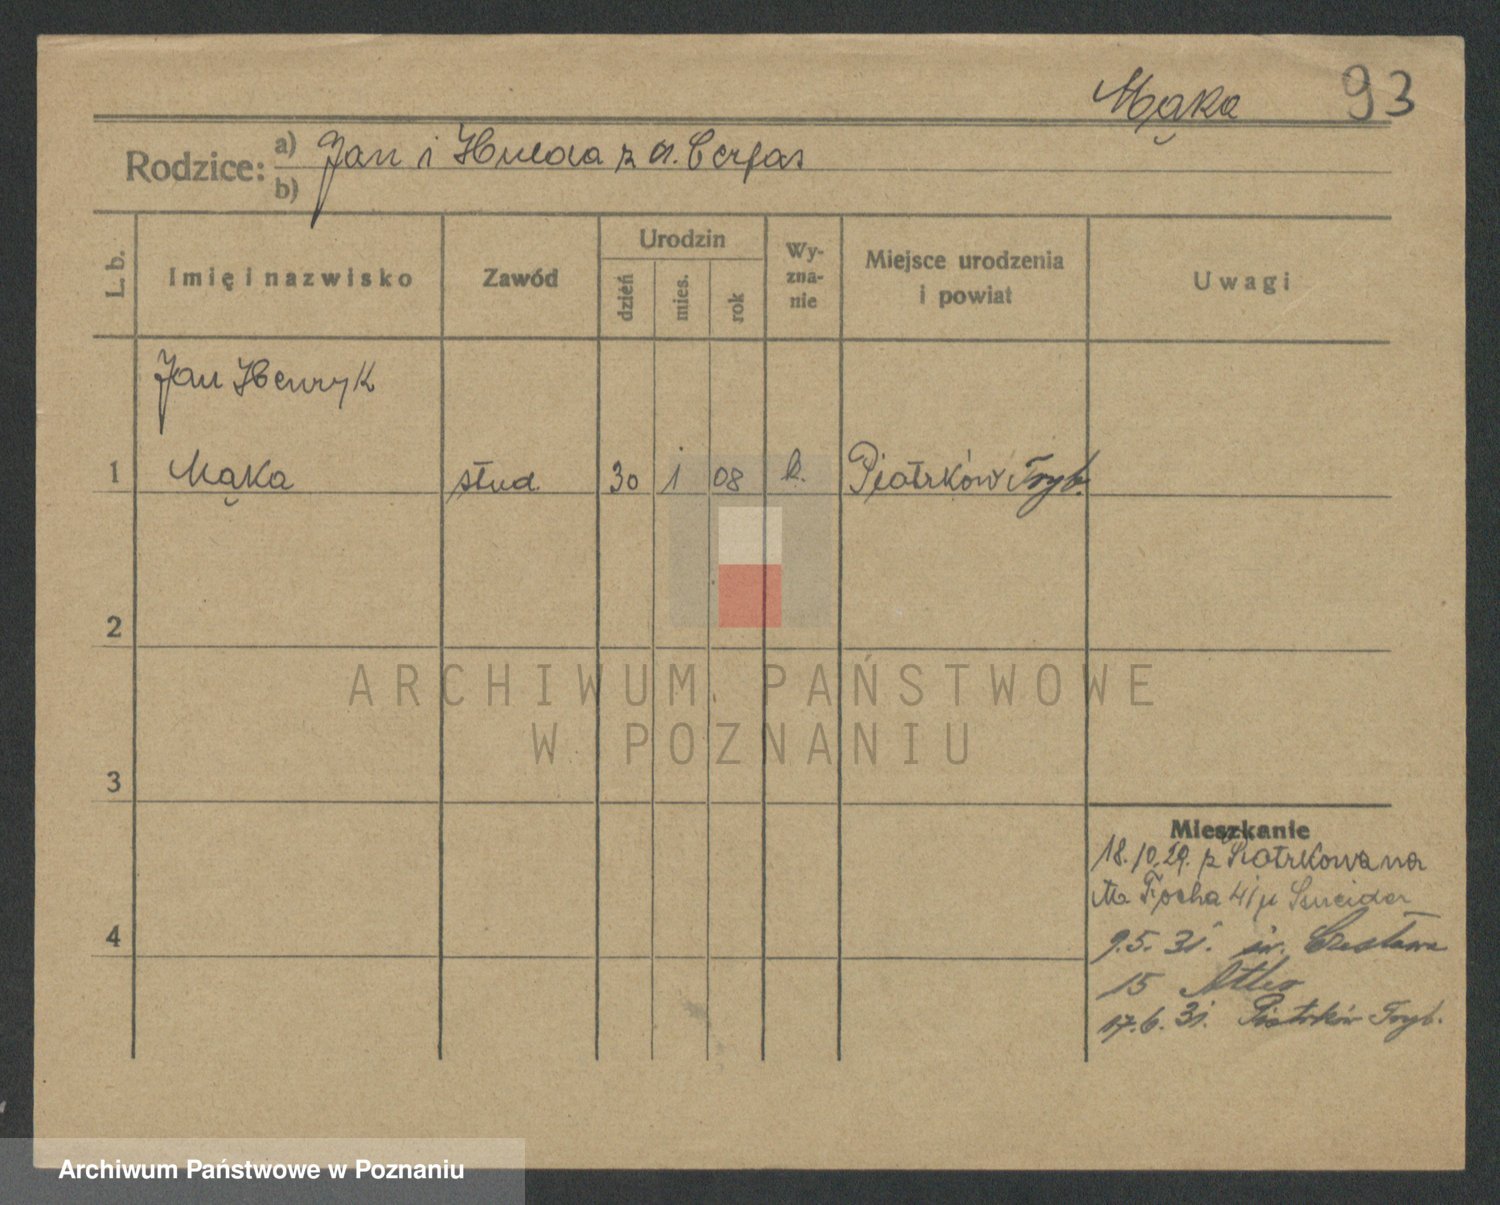 Mąka 93
Rodzice: a) Jan i Hulda z d.
b)
L. b.
Imię i nazwisko
Zawód
Urodzin
dzień
mies.
rok
Wy-
zna-
nie
Miejsce urodzenia
i powiat
Uwagi
Jan Henryk
1 Mąka stud. 30 1 08 k. Piotrków Tryb.
2
ARCHIWUM PAŃSTWOWE
W POZNANIU
3
Mieszkanie
18.10.29. z Piotrkowa na
M. Focha 41
4
9.5.31. św. Czesława
15
17.6.31. Piotrków Tryb.
Archiwum Państwowe w Poznaniu